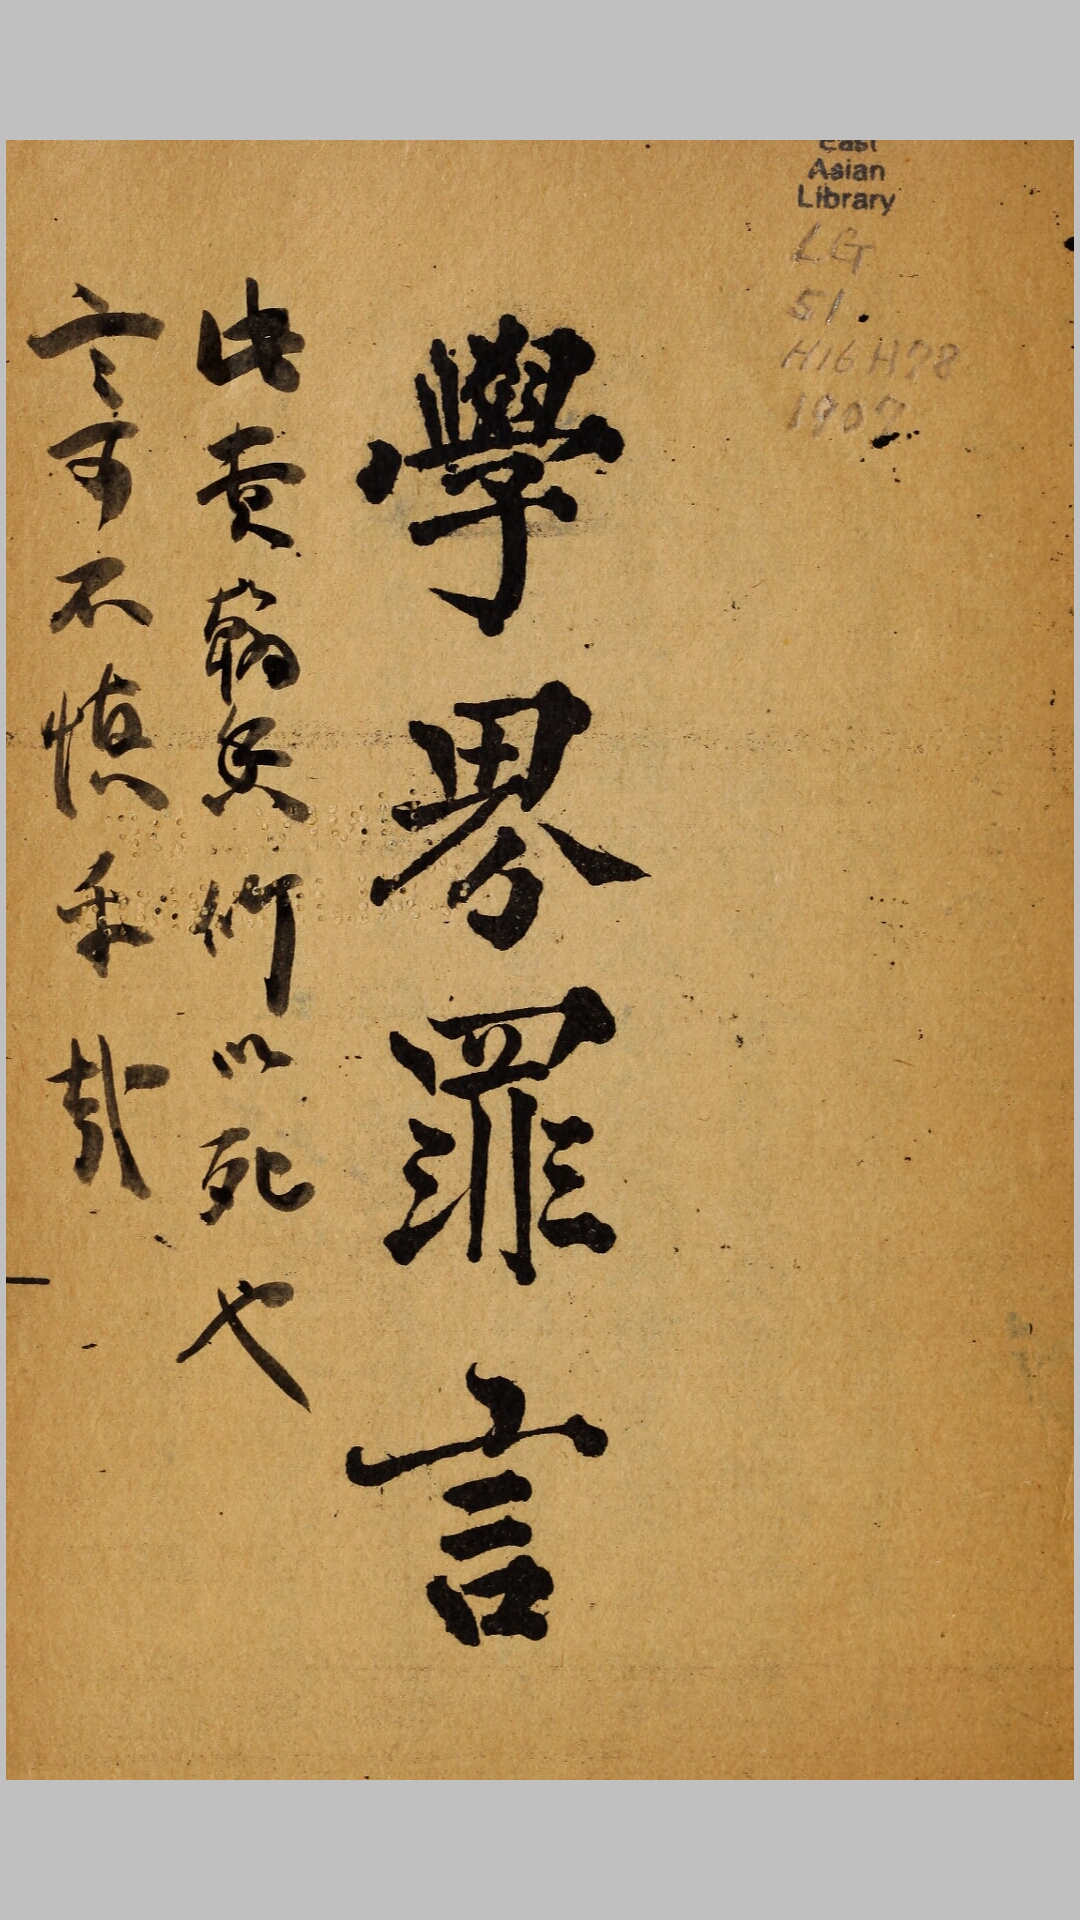 East
Asian
Library
LG
51.
H16 H78
1907
學界罪言
此翰所以死也
言可不慎乎哉